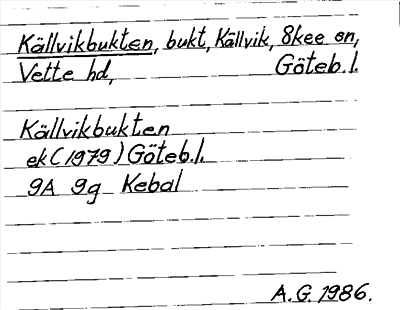 Källvikbukten, bukt, Källvik, Skee sn,
Vette hd, Göteb.l.
Källvikbukten
ek (1979) Göteb.l.
9A 9g Kebal
A.G. 1986.